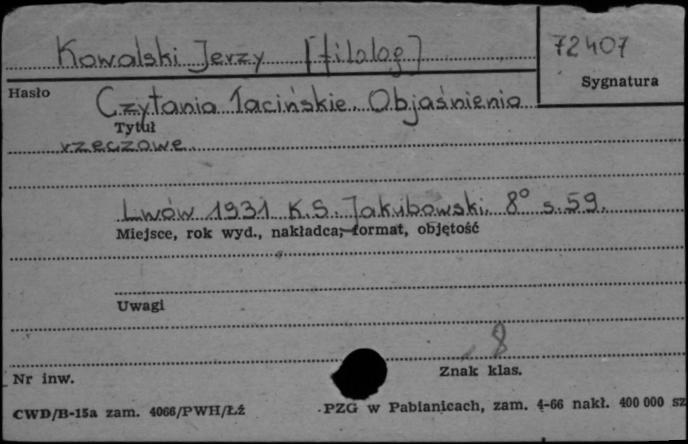 Kowalski Jerzy [filolog]
72407
Sygnatura
Hasło
Czytania łacińskie. Objaśnienia
Tytuł
rzeczowe.
Lwów 1931 K.S. Jakubowski. 8° s. 59.
Miejsce, rok wyd., nakładca, format, objętość
Uwagi
8
Nr inw.
Znak klas.
CWD/B-15a zam. 4066/PWH/Łź
PZG w Pabianicach, zam. 4-66 nakł. 400 000 sz